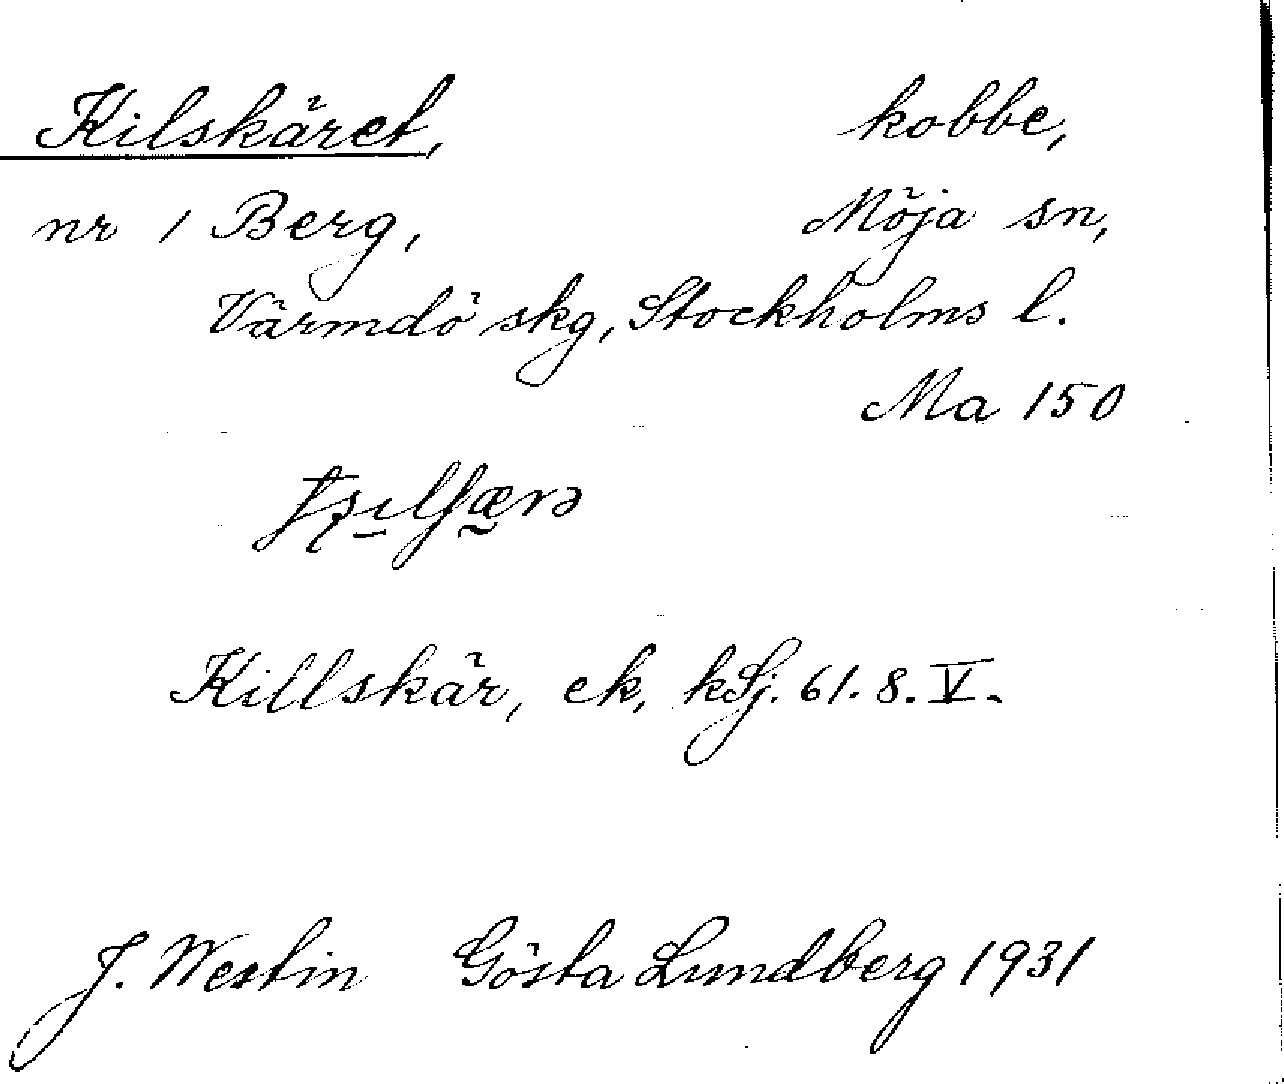 Kilskäret, kobbe,
nr 1 Berg, Möja sn,
Värmdö skg, Stockholms l.
Ma 150
Killskär, ek, kSj. 61. 8. V.
J. Westin Gösta Lundberg 1931